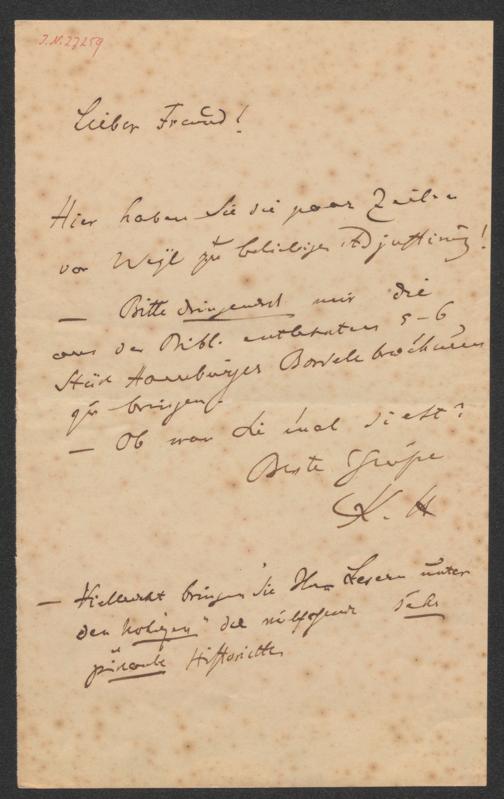 J.N. 27259
Lieber Freund!
Hier haben Sie die paar Zeilen
von Weyl zu beliebiger Adjustirung!
— Bitte dringendst mir die
aus der Bibl. entlehnten 5-6
Stück Hamburger Bordellbrochuren
zu bringen
— Ob man Sie 'mal sieht?
Beste Grüße
K. H
— Vielleicht bringen Sie Ihren Lesern unter
den "Notizen" die sehr
pikante Historiette